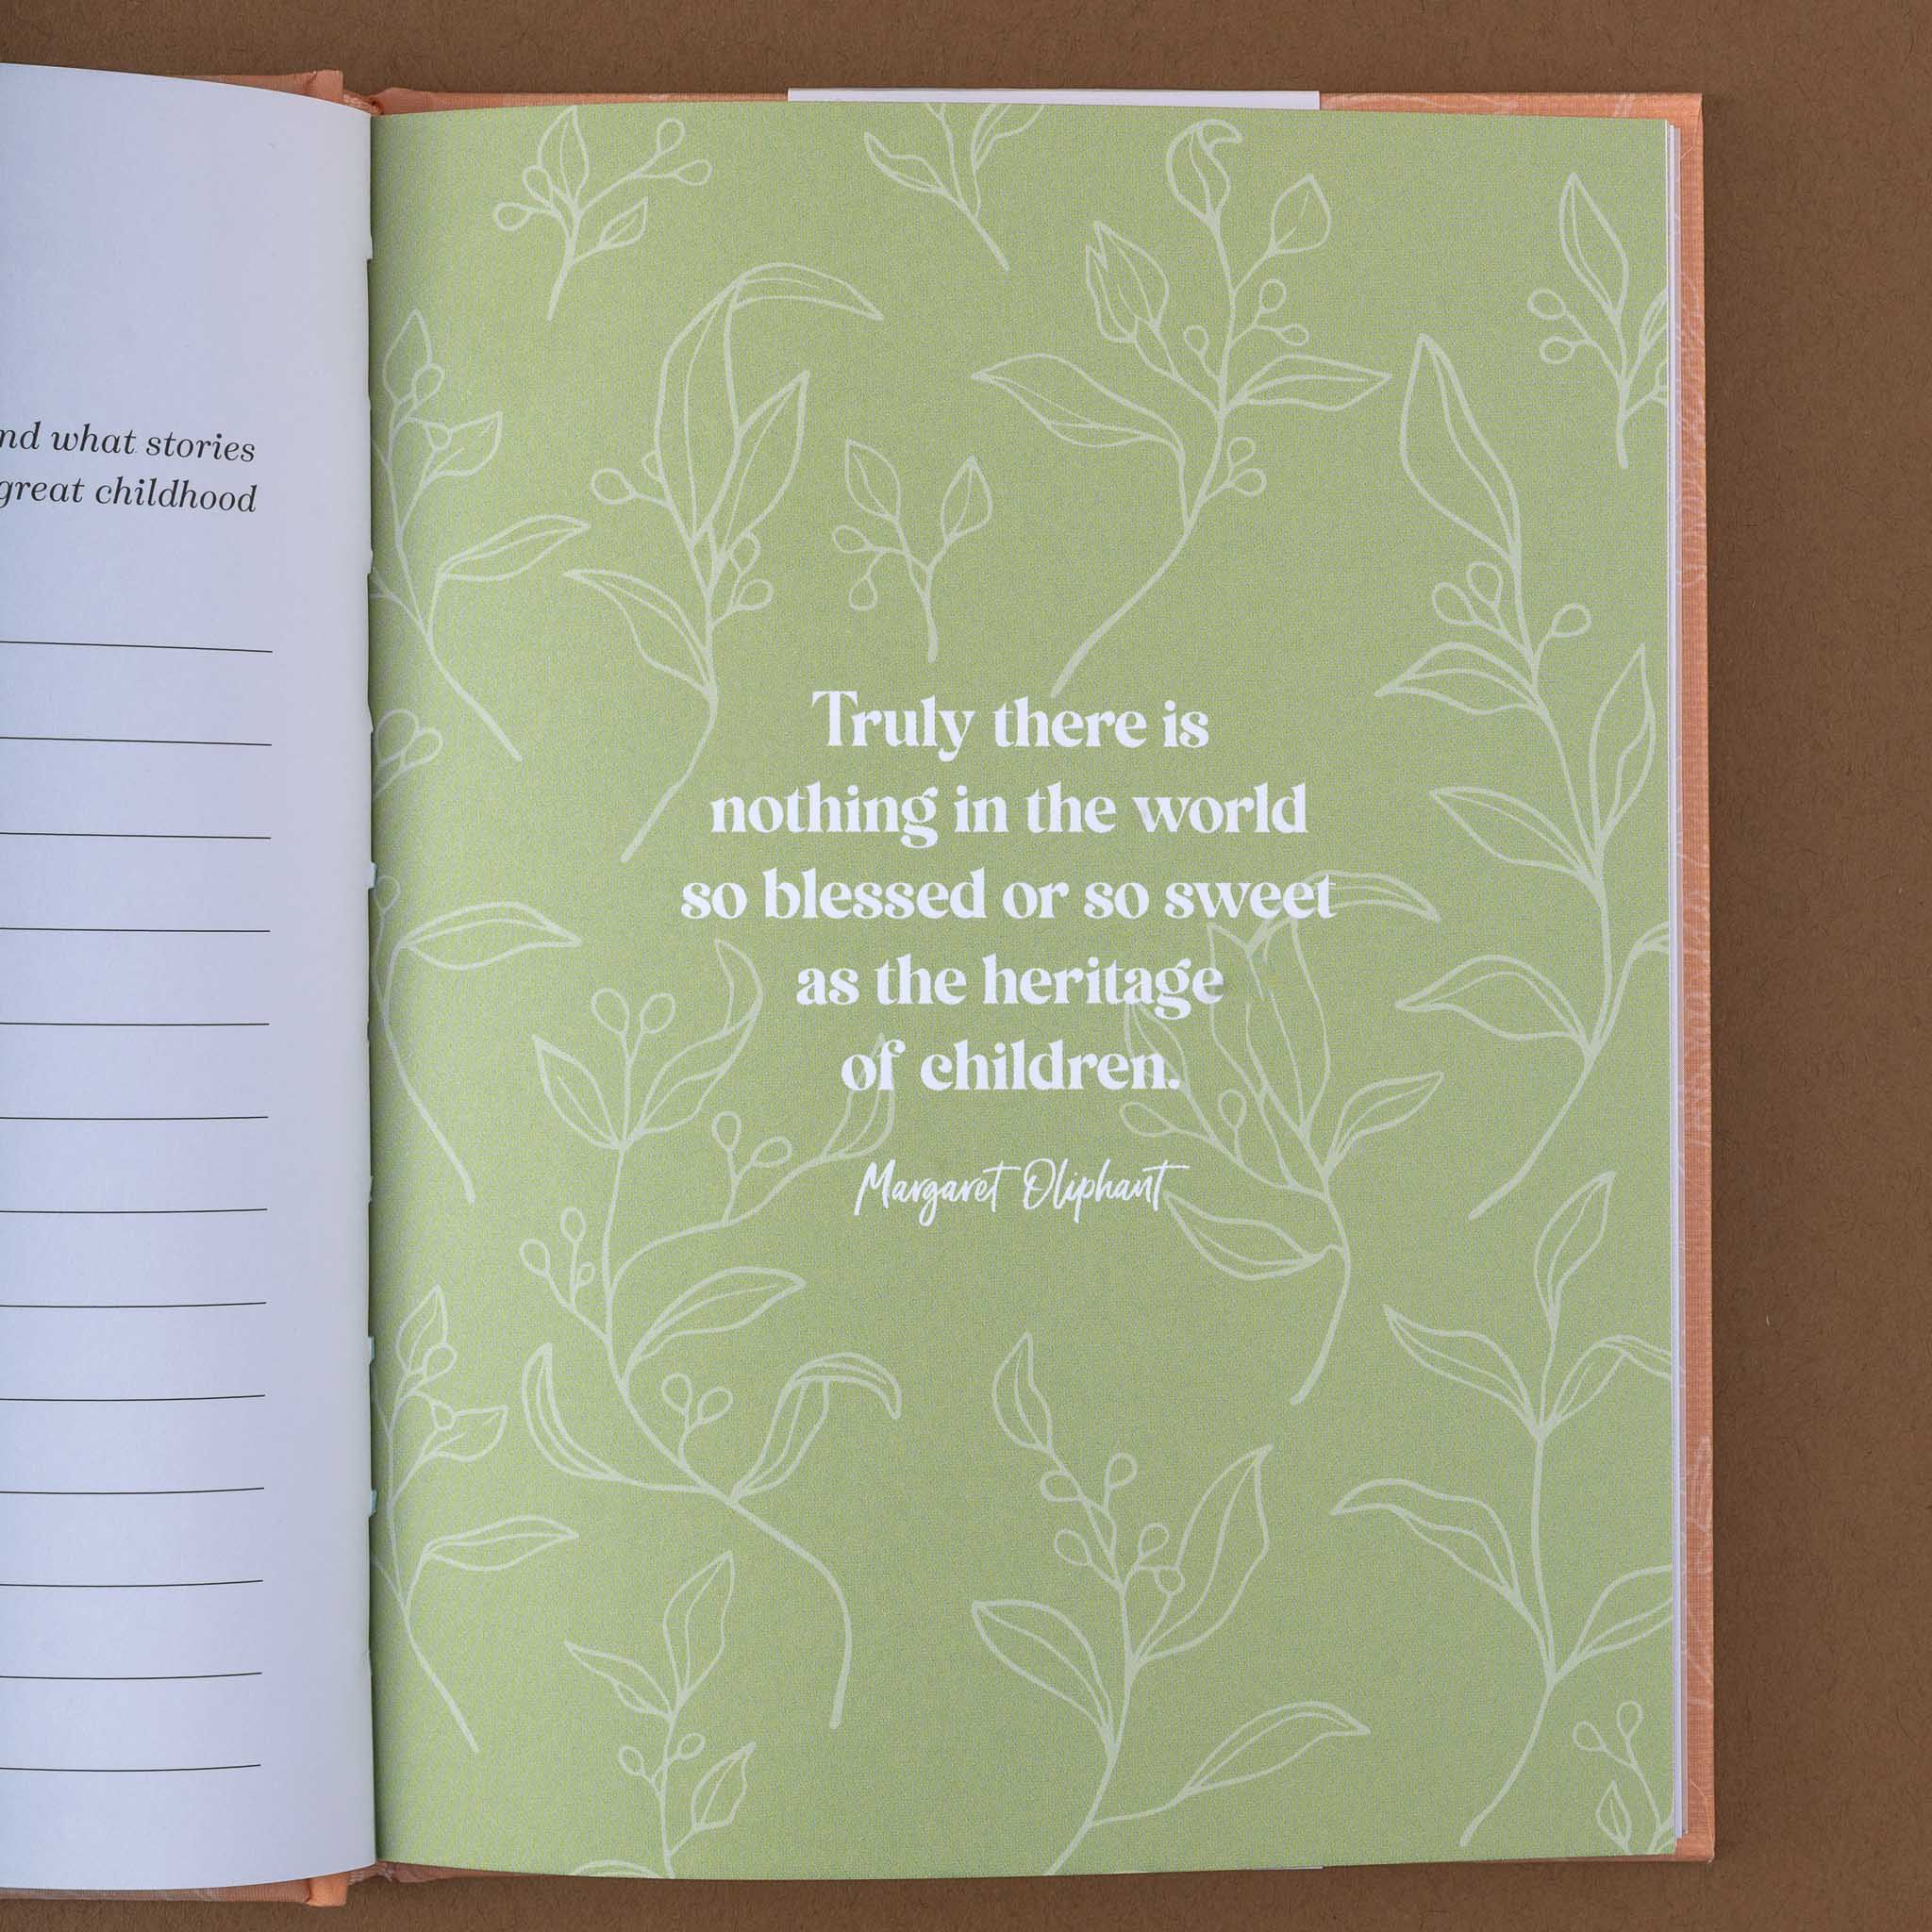 what stories
great childhood
Truly there is
nothing in the world
so blessed or so sweet
as the heritage
of children.
Margaret Oliphant